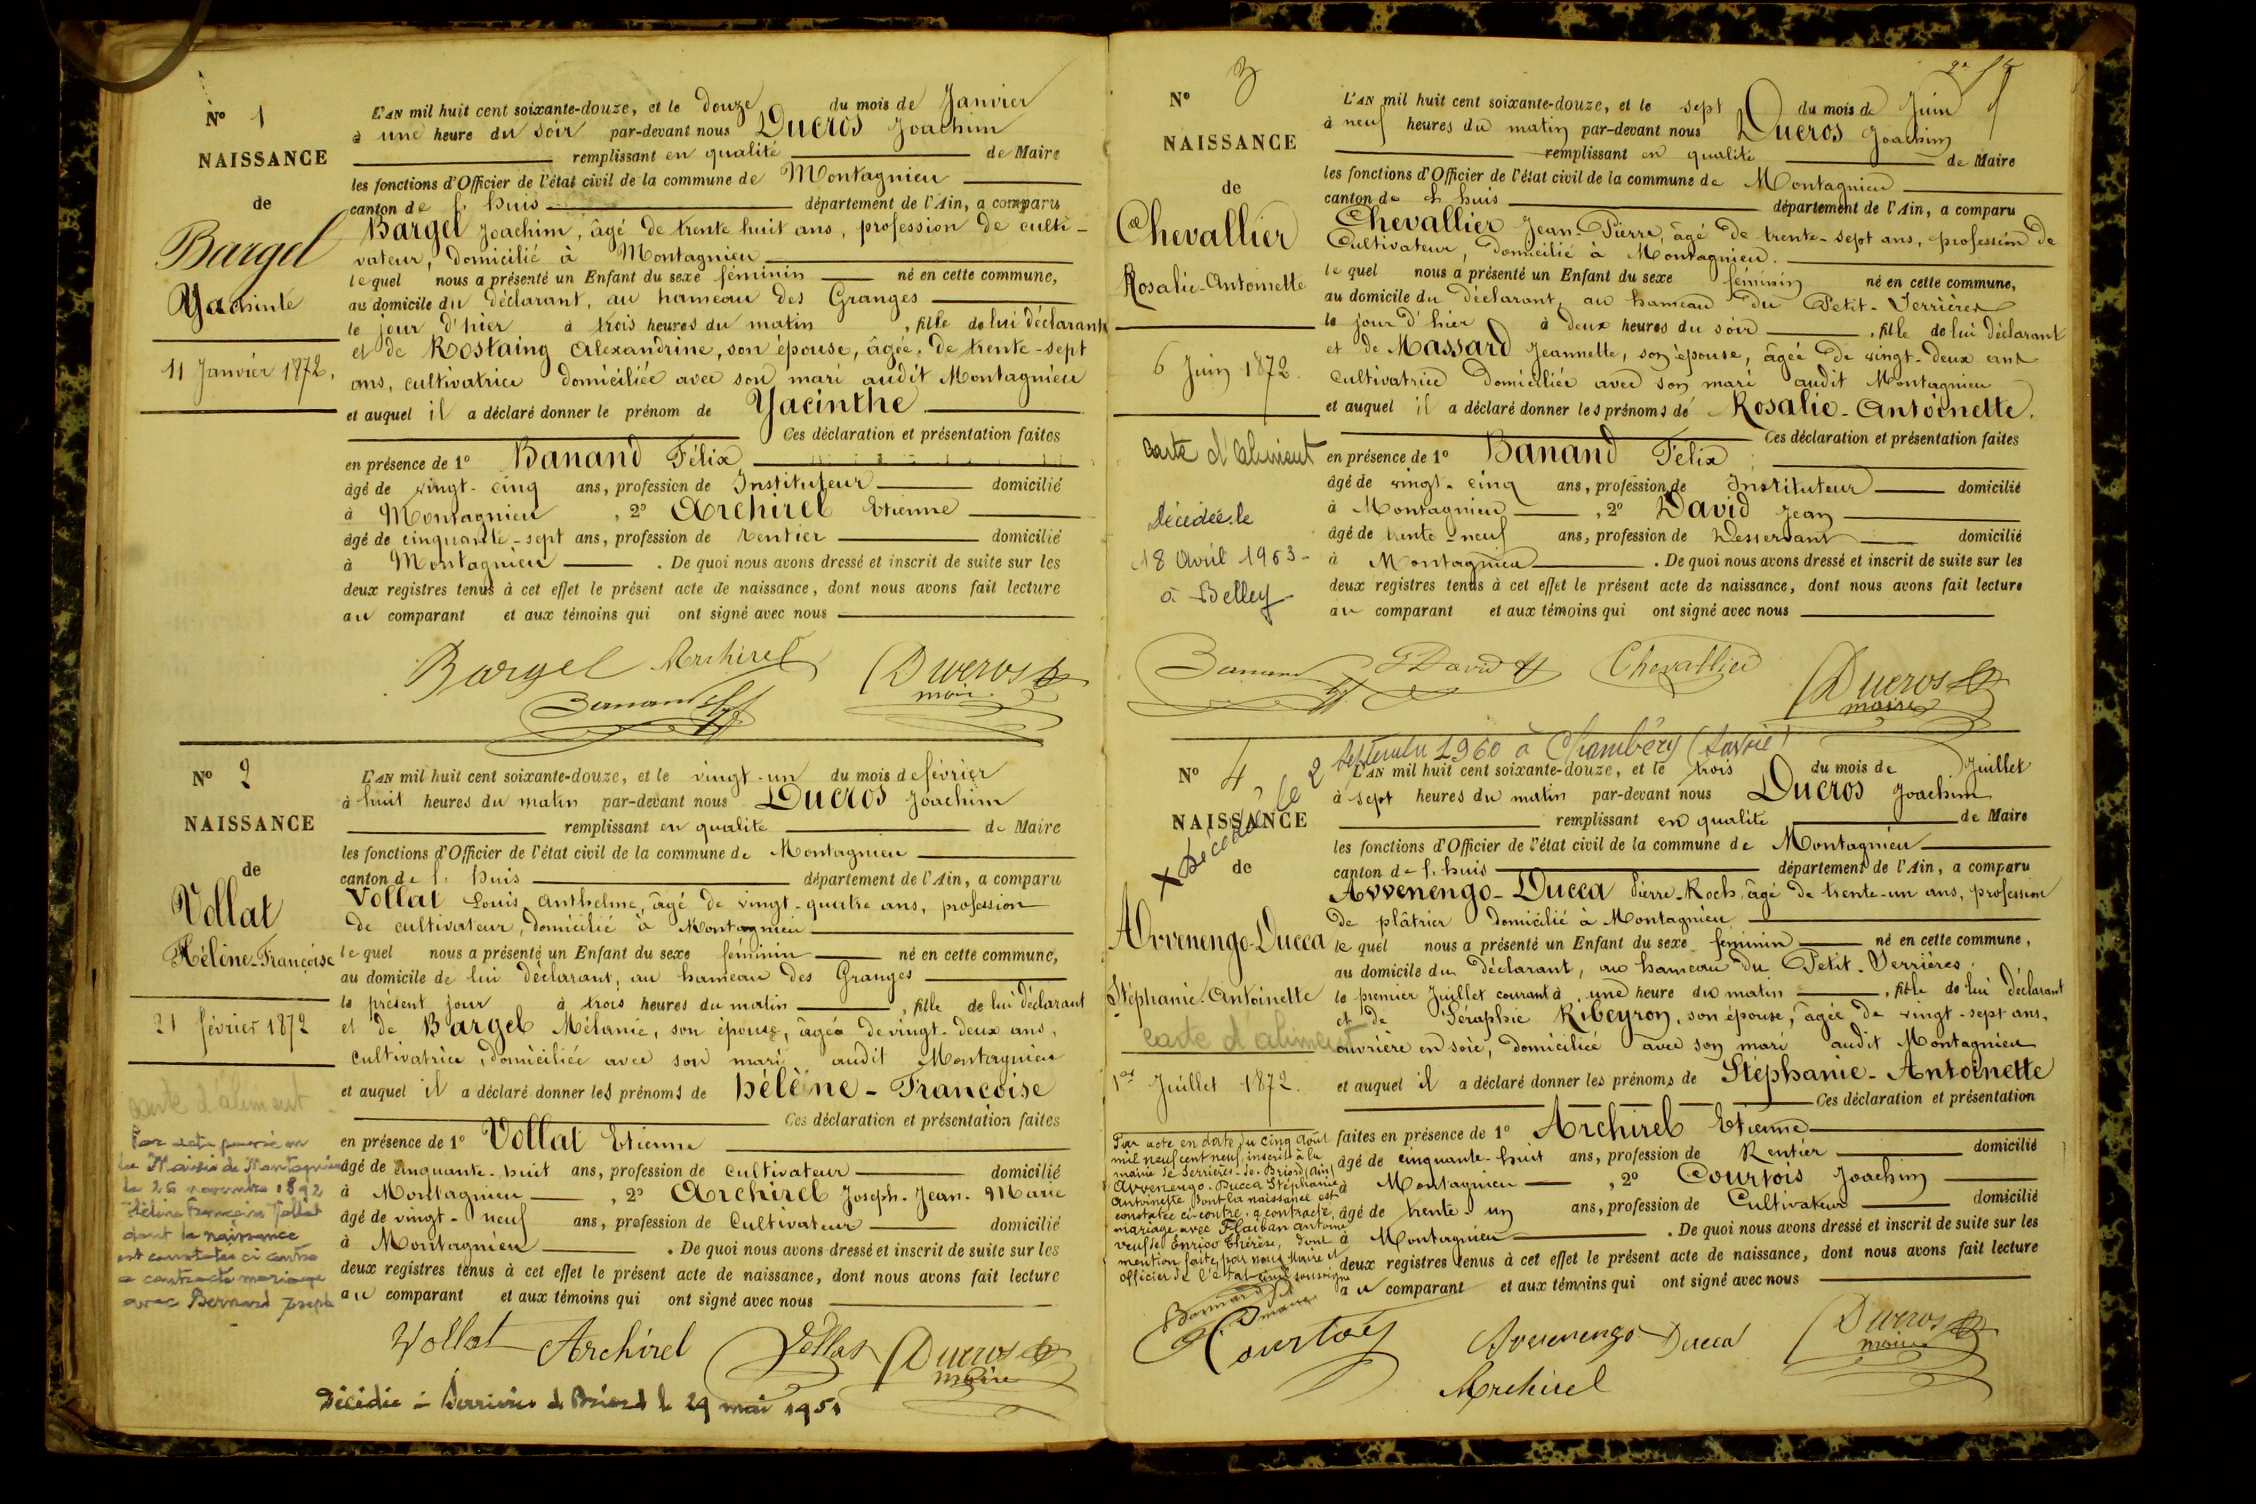 N° 1
NAISSANCE
de
Bargel
Yacinte
11 Janvier 1872.
L'AN mil huit cent soixante-douze, et le douze du mois de Janvier
à une heure du soir par-devant nous Ducros Joachim
remplissant en qualité de Maire
les fonctions d'Officier de l'état civil de la commune de Montagnieu
canton de L'huis département de l'Ain, a comparu
Bargel Joachim, âgé de trente huit ans, profession de culti-
vateur, domicilié à Montagnieu
lequel nous a présenté un Enfant du sexe féminin né en cette commune,
au domicile du déclarant, au hameau des Granges
le jour d'hier à trois heures du matin, fille de lui déclarant
et de Rostaing Alexandrine, son épouse, âgée de trente-sept
ans, cultivatrice domiciliée avec son mari audit Montagnieu
et auquel il a déclaré donner le prénom de Yacinthe
Ces déclaration et présentation faites
en présence de 1° Banand Félix
âgé de vingt-cinq ans, profession de Instituteur domicilié
à Montagnieu, 2° Archirel Etienne
âgé de cinquante-sept ans, profession de rentier domicilié
à Montagnieu. De quoi nous avons dressé et inscrit de suite sur les
deux registres tenus à cet effet le présent acte de naissance, dont nous avons fait lecture
au comparant et aux témoins qui ont signé avec nous
Bargel Archirel Ducros
Banand maire
N° 2
NAISSANCE
de
Vollat
Hélène-Françoise
21 février 1872
carte d'aliment
Par acte passé en
la Mairie de Montagnieu
le 26 novembre 1892
Hélène Françoise Vollat
dont la naissance
est constatée ci contre
a contracté mariage
avec Bernard Joseph
L'AN mil huit cent soixante-douze, et le vingt-un du mois de février
à huit heures du matin par-devant nous Ducros Joachim
remplissant en qualité de Maire
les fonctions d'Officier de l'état civil de la commune de Montagnieu
canton de L'huis département de l'Ain, a comparu
Vollat Louis Anthelme, âgé de vingt-quatre ans, profession
de cultivateur, domicilié à Montagnieu
lequel nous a présenté un Enfant du sexe féminin né en cette commune,
au domicile de lui déclarant, au hameau des Granges
le présent jour à trois heures du matin, fille de lui déclarant
et de Bargel Mélanie, son épouse, âgée de vingt-deux ans,
cultivatrice, domiciliée avec son mari audit Montagnieu
et auquel il a déclaré donner les prénoms de hélène-Françoise
Ces déclaration et présentation faites
en présence de 1° Vollat Etienne
âgé de cinquante-huit ans, profession de Cultivateur domicilié
à Montagnieu, 2° Archirel Joseph-Jean-Marie
âgé de vingt-neuf ans, profession de Cultivateur domicilié
à Montagnieu. De quoi nous avons dressé et inscrit de suite sur les
deux registres tenus à cet effet le présent acte de naissance, dont nous avons fait lecture
au comparant et aux témoins qui ont signé avec nous
Vollat Archirel Vollat Ducros
maire
Décédée à Serrières de Briord le 29 mai 1951
N° 3
NAISSANCE
de
Chevallier
Rosalie-Antoinette
6 Juin 1872.
carte d'aliment
Décédée le
18 Avril 1953-
à Belley
L'AN mil huit cent soixante-douze, et le sept du mois de Juin
à neuf heures du matin par-devant nous Ducros Joachim
remplissant en qualité de Maire
les fonctions d'Officier de l'état civil de la commune de Montagnieu
canton de L'huis département de l'Ain, a comparu
Chevallier Jean-Pierre, âgé de trente-sept ans, profession de
Cultivateur, domicilié à Montagnieu.
lequel nous a présenté un Enfant du sexe féminin né en cette commune,
au domicile du déclarant, au hameau du Petit-Serrières
le jour d'hier à deux heures du soir, fille de lui déclarant
et de Massard Jeannette, son épouse, âgée de vingt-deux ans
cultivatrice domiciliée avec son mari audit Montagnieu
et auquel il a déclaré donner les prénoms de Rosalie-Antoinette.
Ces déclaration et présentation faites
en présence de 1° Banand Félix
âgé de vingt-cinq ans, profession de Instituteur domicilié
à Montagnieu, 2° David Jean
âgé de trente-neuf ans, profession de Desservant domicilié
à Montagnieu. De quoi nous avons dressé et inscrit de suite sur les
deux registres tenus à cet effet le présent acte de naissance, dont nous avons fait lecture
au comparant et aux témoins qui ont signé avec nous
Banand David Chevallier Ducros
maire
N° 4
NAISSANCE
de
X Décédée le 2 Septembre 1960 à Chambéry (Savoie)
Avvenengo-Ducca
Stéphanie-Antoinette
carte d'aliment
1er Juillet 1872.
Par acte en date du cinq Août
mil neuf cent neuf, inscrit à la
mairie de Serrières-de-Briord, Ain,
Avvenengo-Ducca Stéphanie
Antoinette dont la naissance est
constatée ci-contre, a contracté
mariage avec Flaiban Antoine
veuf de Enrico Thérèse, dont
mention faite par nous Maire et
officier de l'état civil soussigné
L'AN mil huit cent soixante-douze, et le trois du mois de Juillet
à sept heures du matin par-devant nous Ducros Joachim
remplissant en qualité de Maire
les fonctions d'Officier de l'état civil de la commune de Montagnieu
canton de L'huis département de l'Ain, a comparu
Avvenengo-Ducca Pierre-Roch, âgé de trente-un ans, profession
de plâtrier domicilié à Montagnieu
lequel nous a présenté un Enfant du sexe féminin né en cette commune,
au domicile du déclarant, au hameau du Petit-Serrières
le premier Juillet courant à une heure du matin, fille de lui déclarant
et de Séraphie Ribeyron, son épouse, âgée de vingt-sept ans,
ouvrière en soie, domiciliée avec son mari audit Montagnieu
et auquel il a déclaré donner les prénoms de Stéphanie-Antoinette
Ces déclaration et présentation
faites en présence de 1° Archirel Etienne
âgé de cinquante-huit ans, profession de Rentier domicilié
à Montagnieu, 2° Courtois Joachim
âgé de trente-un ans, profession de Cultivateur domicilié
à Montagnieu. De quoi nous avons dressé et inscrit de suite sur les
deux registres tenus à cet effet le présent acte de naissance, dont nous avons fait lecture
au comparant et aux témoins qui ont signé avec nous
Courtois Avvenengo Ducca Ducros
maire
Archirel